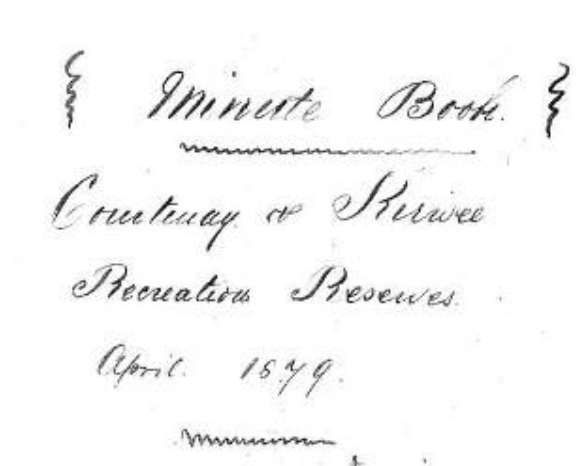 Minute Book.
Courtenay & Kirwee
Recreation Reserves.
April. 1879.